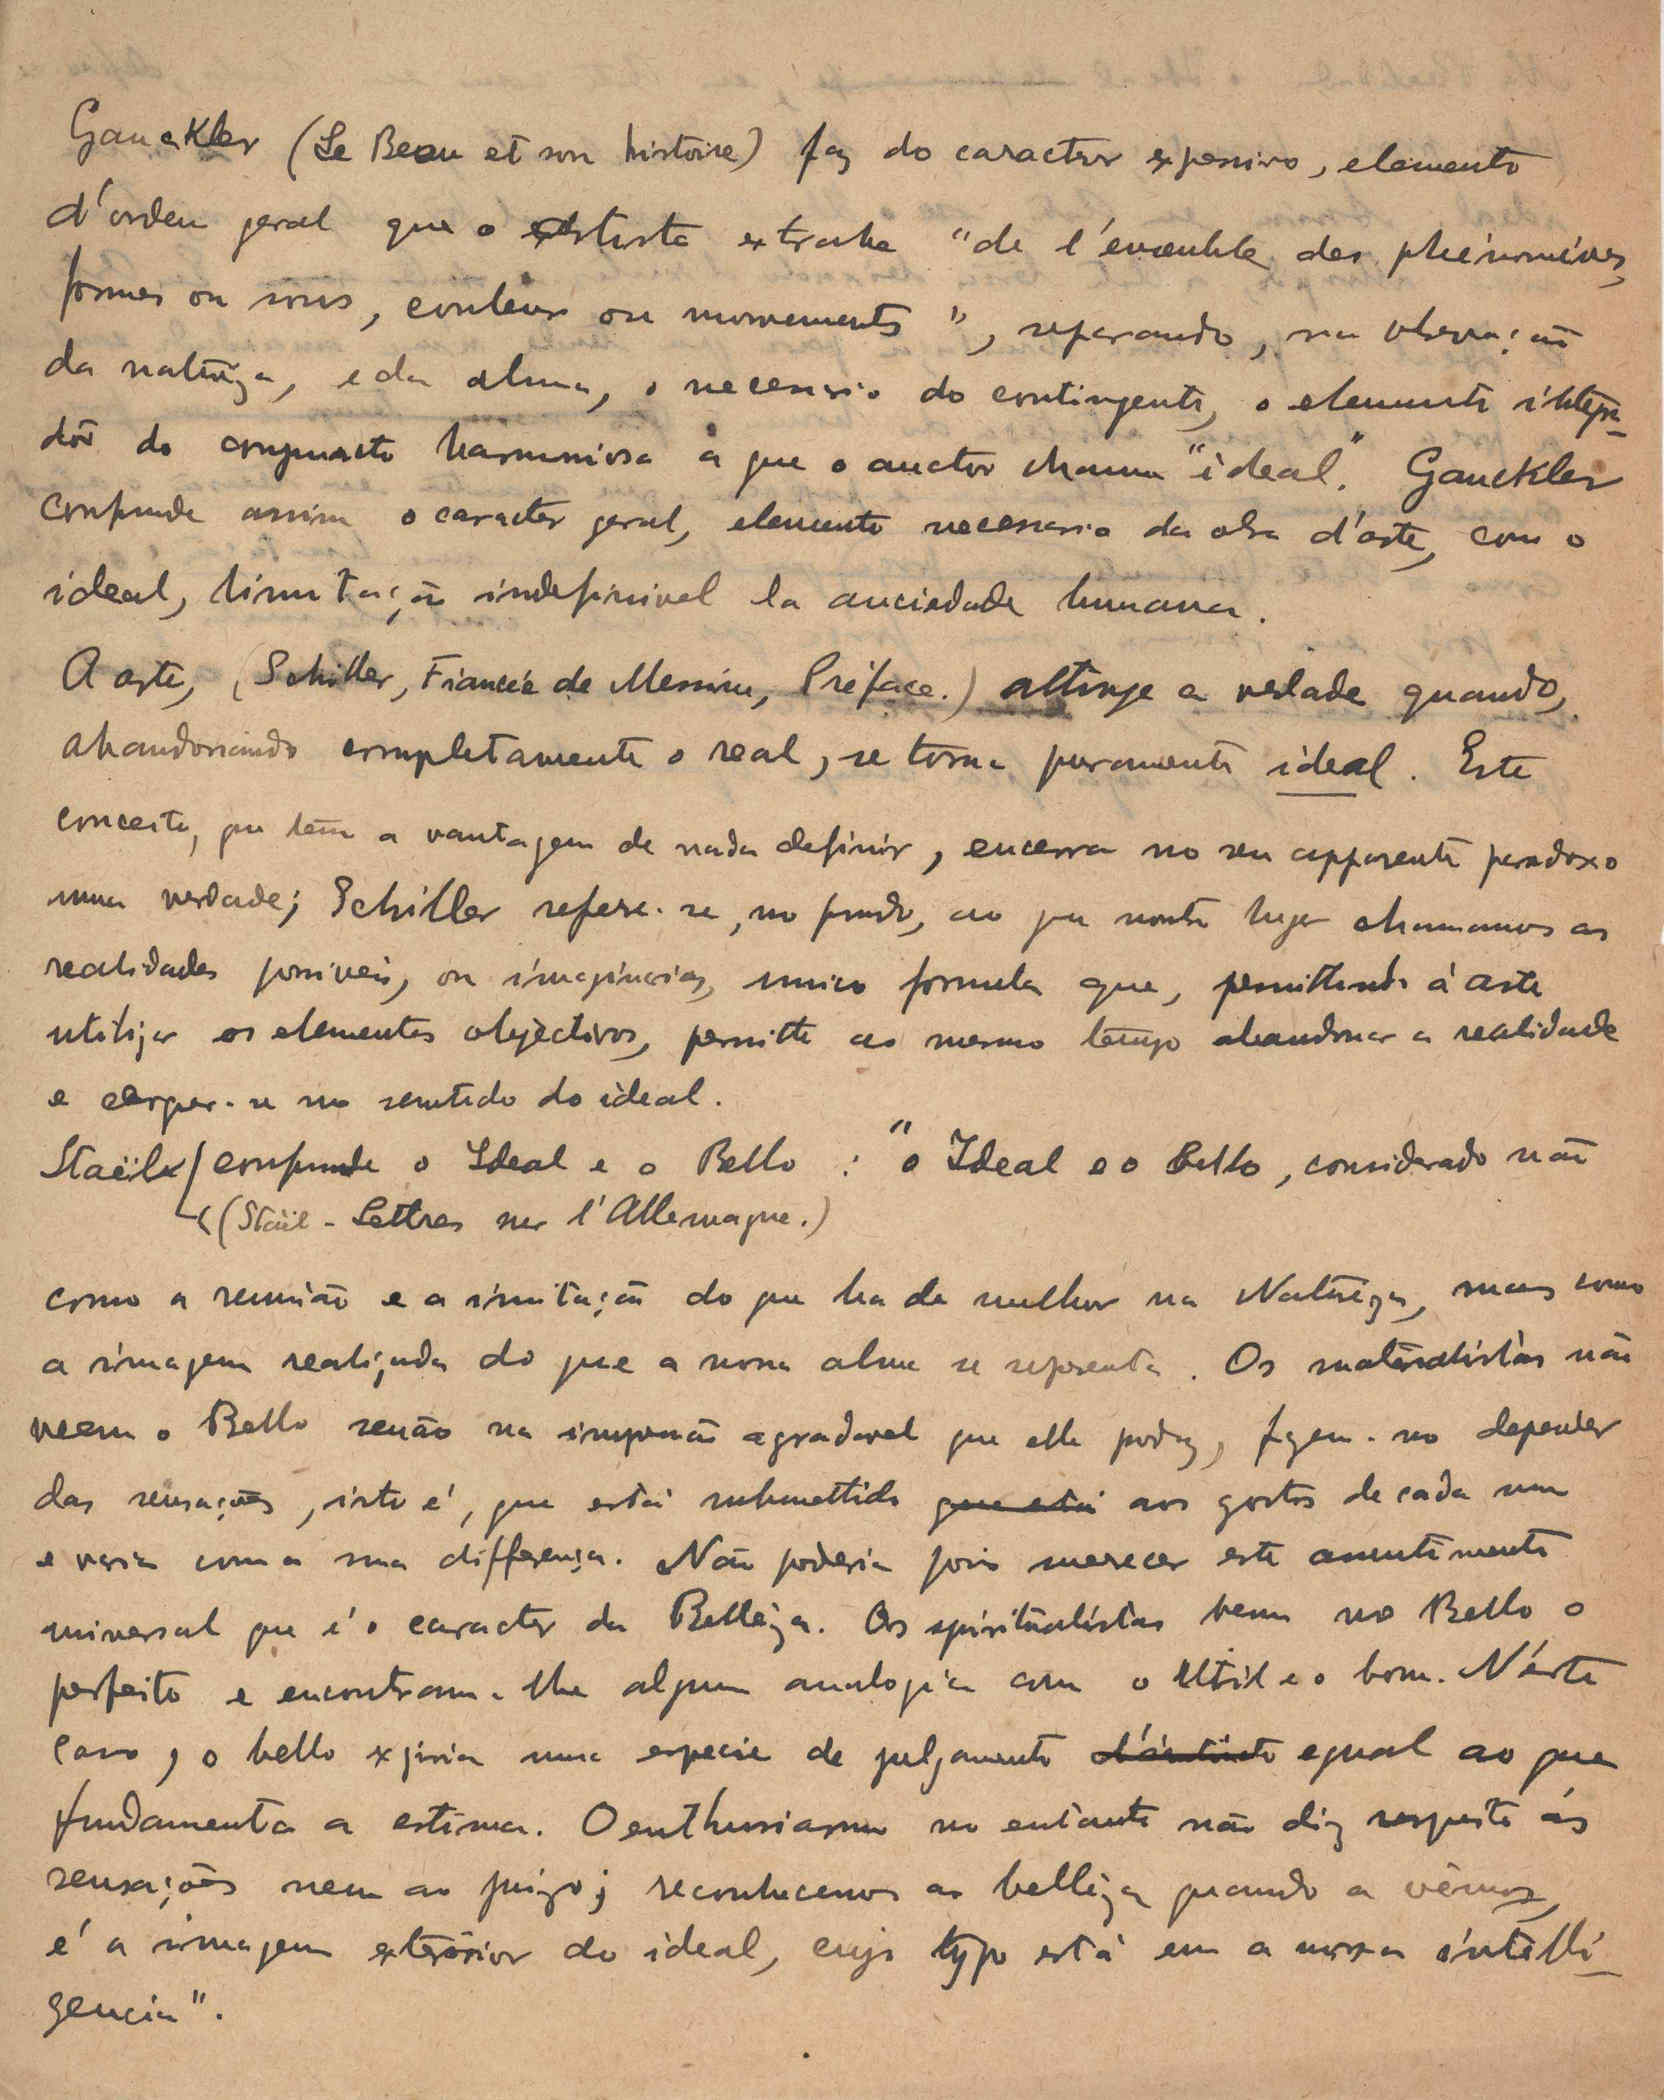 Gauckler (Le Beau et son histoire) faz do caracter expressivo, elemento
d'ordem geral que o artista extrahe "de l'ensemble des phénomènes,
formes ou sons, couleurs ou mouvements", separando, na observação
da natureza, e da alma, o necessario do contingente, o elemento integra-
dôr do conjuncto harmonioso a que o auctor chama "ideal". Gauckler
confunde assim o caracter geral, elemento necessario da obra d'arte, com o
ideal, limitação indefinivel da anciedade humana.
A arte, (Schiller, Fiancée de Messine, Préface.) attinge a verdade quando,
abandonando completamente o real, se torna puramente ideal. Este
conceito, que tem a vantagem de nada definir, encerra no seu apparente paradoxo
uma verdade; Schiller refere-se, no fundo, ao que noutro lugar chamamos as
realidades possiveis, ou imaginarias, unica formula que, permittindo á arte
utilizar os elementos objectivos, permitte ao mesmo tempo abandonar a realidade
e erguer-se no sentido do ideal.
Staël confunde o Ideal e o Bello : "o Ideal e o Bello, considerado não
(Staël - Lettres sur l'Allemagne.)
como a reunião e a imitação do que ha de melhor na Natureza, mas como
a imagem realizada do que a nossa alma se representa. Os materialistas não
veem o Bello senão na impressão agradavel que elle produz, fazem-no depender
das sensações, isto é, que está submettido que está aos gostos de cada um
e varia com a sua differença. Não poderia pois merecer este assentimento
universal que é o caracter da Belleza. Os spiritualistas veem no Bello o
perfeito e encontram-lhe alguma analogia com o util e o bom. N'este
caso, o bello exigiria uma especie de julgamento egual ao que
fundamenta a estima. O enthusiasmo no entanto não diz respeito ás
sensações nem ao juizo; reconhecemos a belleza quando a vêmos,
é a imagem exterior do ideal, cujo typo está em a nossa intelli-
gencia".